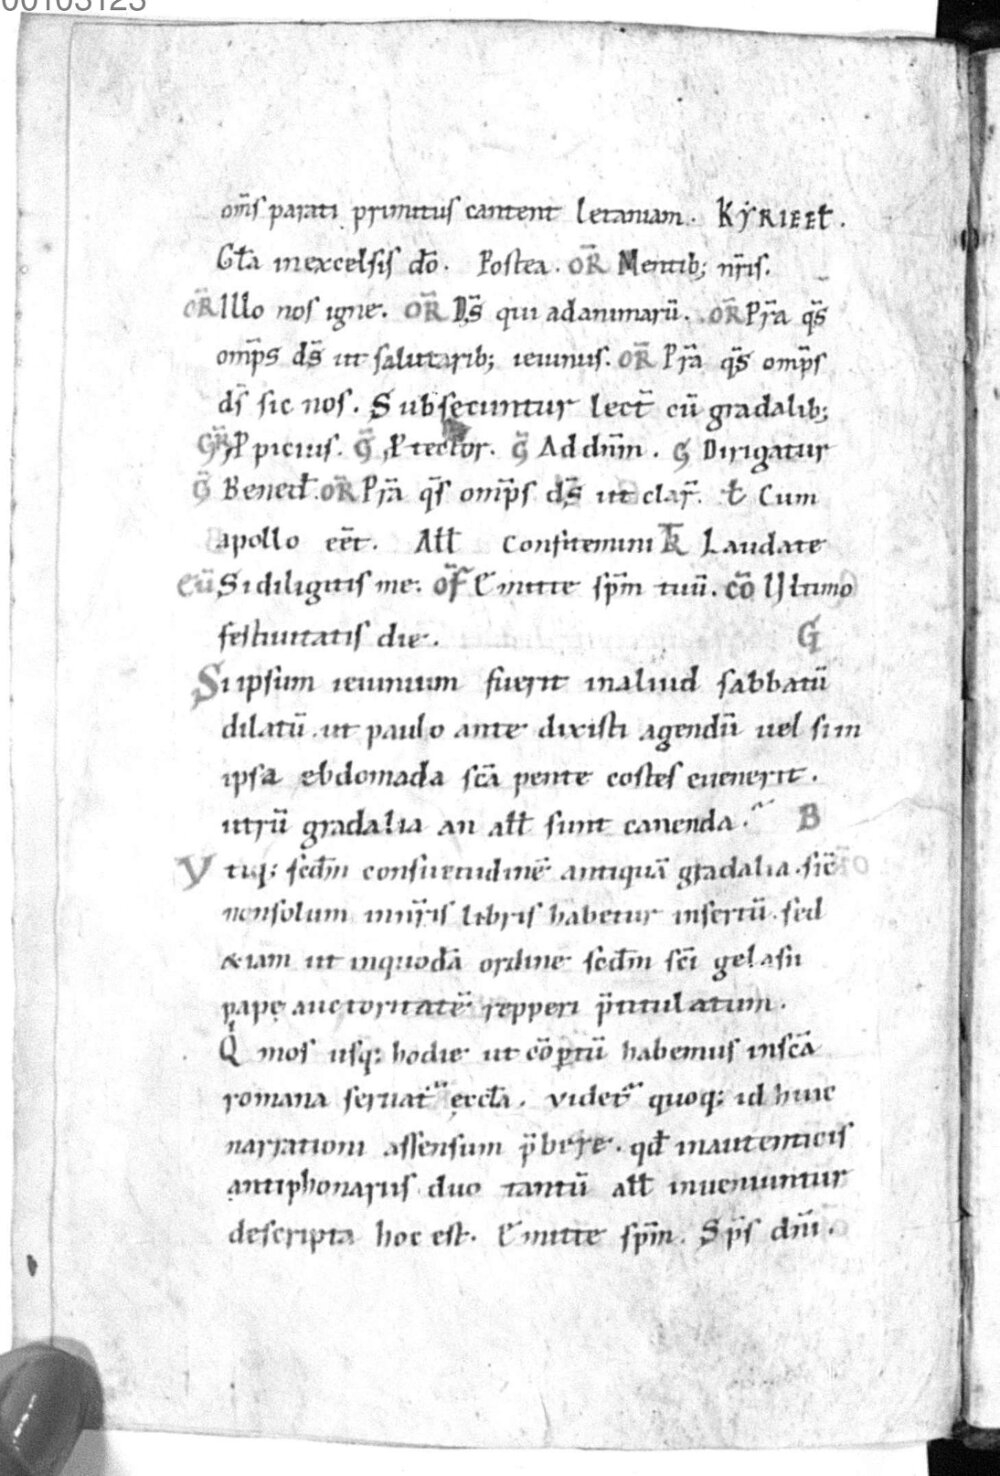 00103123
om̅s parati primitus cantent letaniam. KYRIEEŁ.
Gła in excelsis dō. Postea. OR̅ Mentib; nr̅is.
OR̅ Illo nos igne. OR̅ Ds̅ qui ad animarū. OR̅ Pr̅a qs̅
omp̅s ds̅ ut salutarib; ieiuniis. OR̅ Pr̅a qs̅ omp̅s
ds̅ sic nos. Subsecuntur lect̅ cū gradalib;
GR̅ Ꝓpicius. G̅ Ꝓtector. G̅ Ad dn̅m. G Dirigatur
G̅ Bened̅. OR̅ Pr̅a qs̅ omp̅s ds̅ ut clar̅. ł Cum
apollo eēt. Ałł Confitemini TR̅ Laudate
Eū Si diligitis me. Of̅ Emitte sp̅m tuū. cō Ultimo
festiuitatis die. G
Si ipsum ieiunium fuerit in aliud sabbatū
dilatū. ut paulo ante dixisti agendū uel si in
ipsa ebdomada sc̅a pentecostes euenerit.
utrū gradalia an ałł sunt canenda. B
Vtiq; scd̅m consuetudinē antiquā gradalia. sic̅
non solum in nr̅is libris habetur insertū. sed
&iam ut in quodā ordine scd̅m sc̅i gelasii
pape auctoritatē repperi p̅titulatum.
Q mos usq; hodie ut cōptū habemus in sc̅a
romana seruat̅ eccła. videt̅ quoq; id huic
narrationi assensum p̅bere. qd̅ in autenticis
antiphonariis duo tantū ałł inueniuntur
descripta hoc est. Emitte sp̅m. Sp̅s dn̅i.